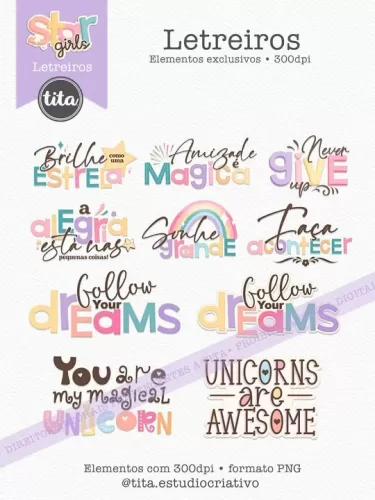 star
girls
Letreiros
tita
Letreiros
Elementos exclusivos • 300dpi
Brilhe
como uma
ESTRELA
Amizade
é
Mágica
Never
giVE
up
a
alegria
está nas
pequenas coisas!
Sonhe
grande
Faça
acontecer
follow
Your
dreams
follow
Your
dreams
You are
my magical
UNICORN
UNICORNS
are
AWESOME
Elementos com 300dpi • formato PNG
@tita.estudiocriativo